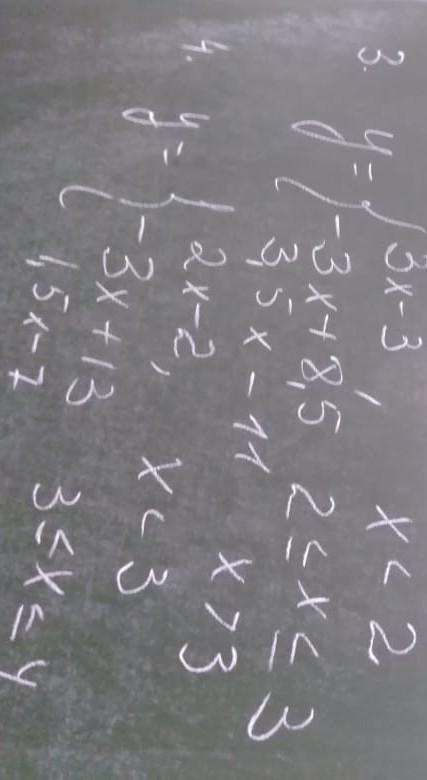 3.
y = { 3x-3, x < 2
-3x+8,5 2 ≤ x ≤ 3
3,5x-11 x > 3
4.
y = { 2x-2, x < 3
-3x+13 3 ≤ x ≤ 4
1,5x-7